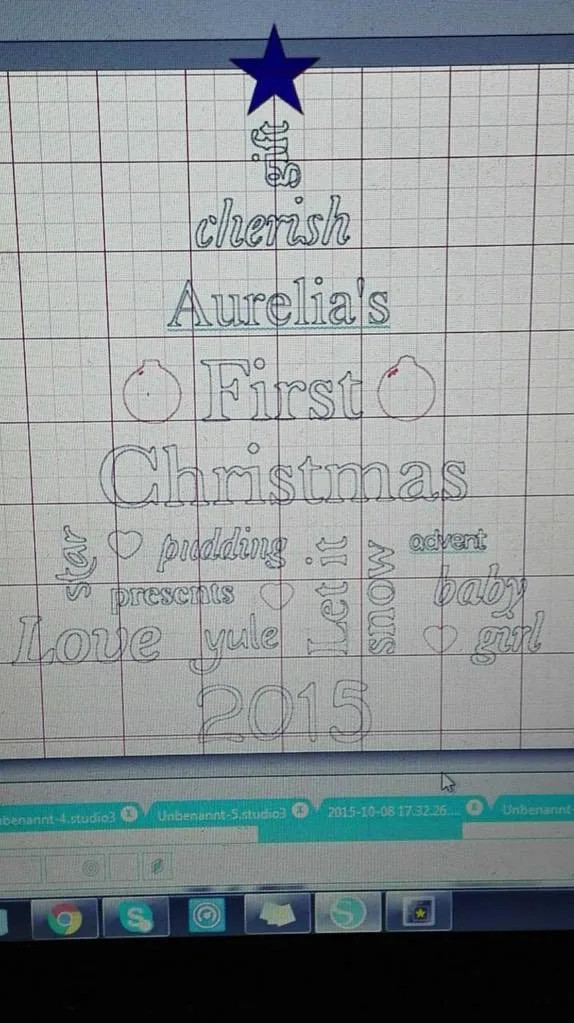 gift
cherish
Aurelia's
First
Christmas
star
pudding
Let it
snow
advent
presents
baby
Love
yule
girl
2015
nbenannt-4.studio3
Unbenannt-5.studio3
2015-10-08 17.32.26....
Unbenannt-